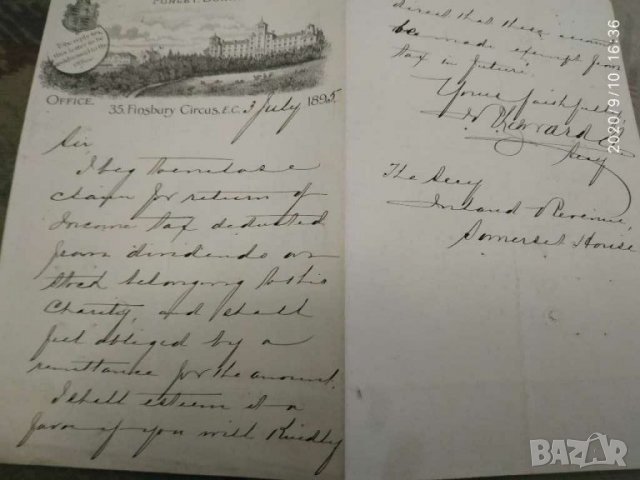 OFFICE.
35, Finsbury Circus, E.C. 3 July 1895
Sir
I beg to enclose a
claim for return of
Income tax deducted
from dividends on
stock belonging to this
Charity, and shall
feel obliged by a
remittance for the amount.
I shall esteem it a
favor if you will Kindly
direct that these
be made exempt from
tax in future.
Yours faithfully
Secy
The Secy
Inland Revenue,
Somerset House
2020/9/10 16:36
BAZAR